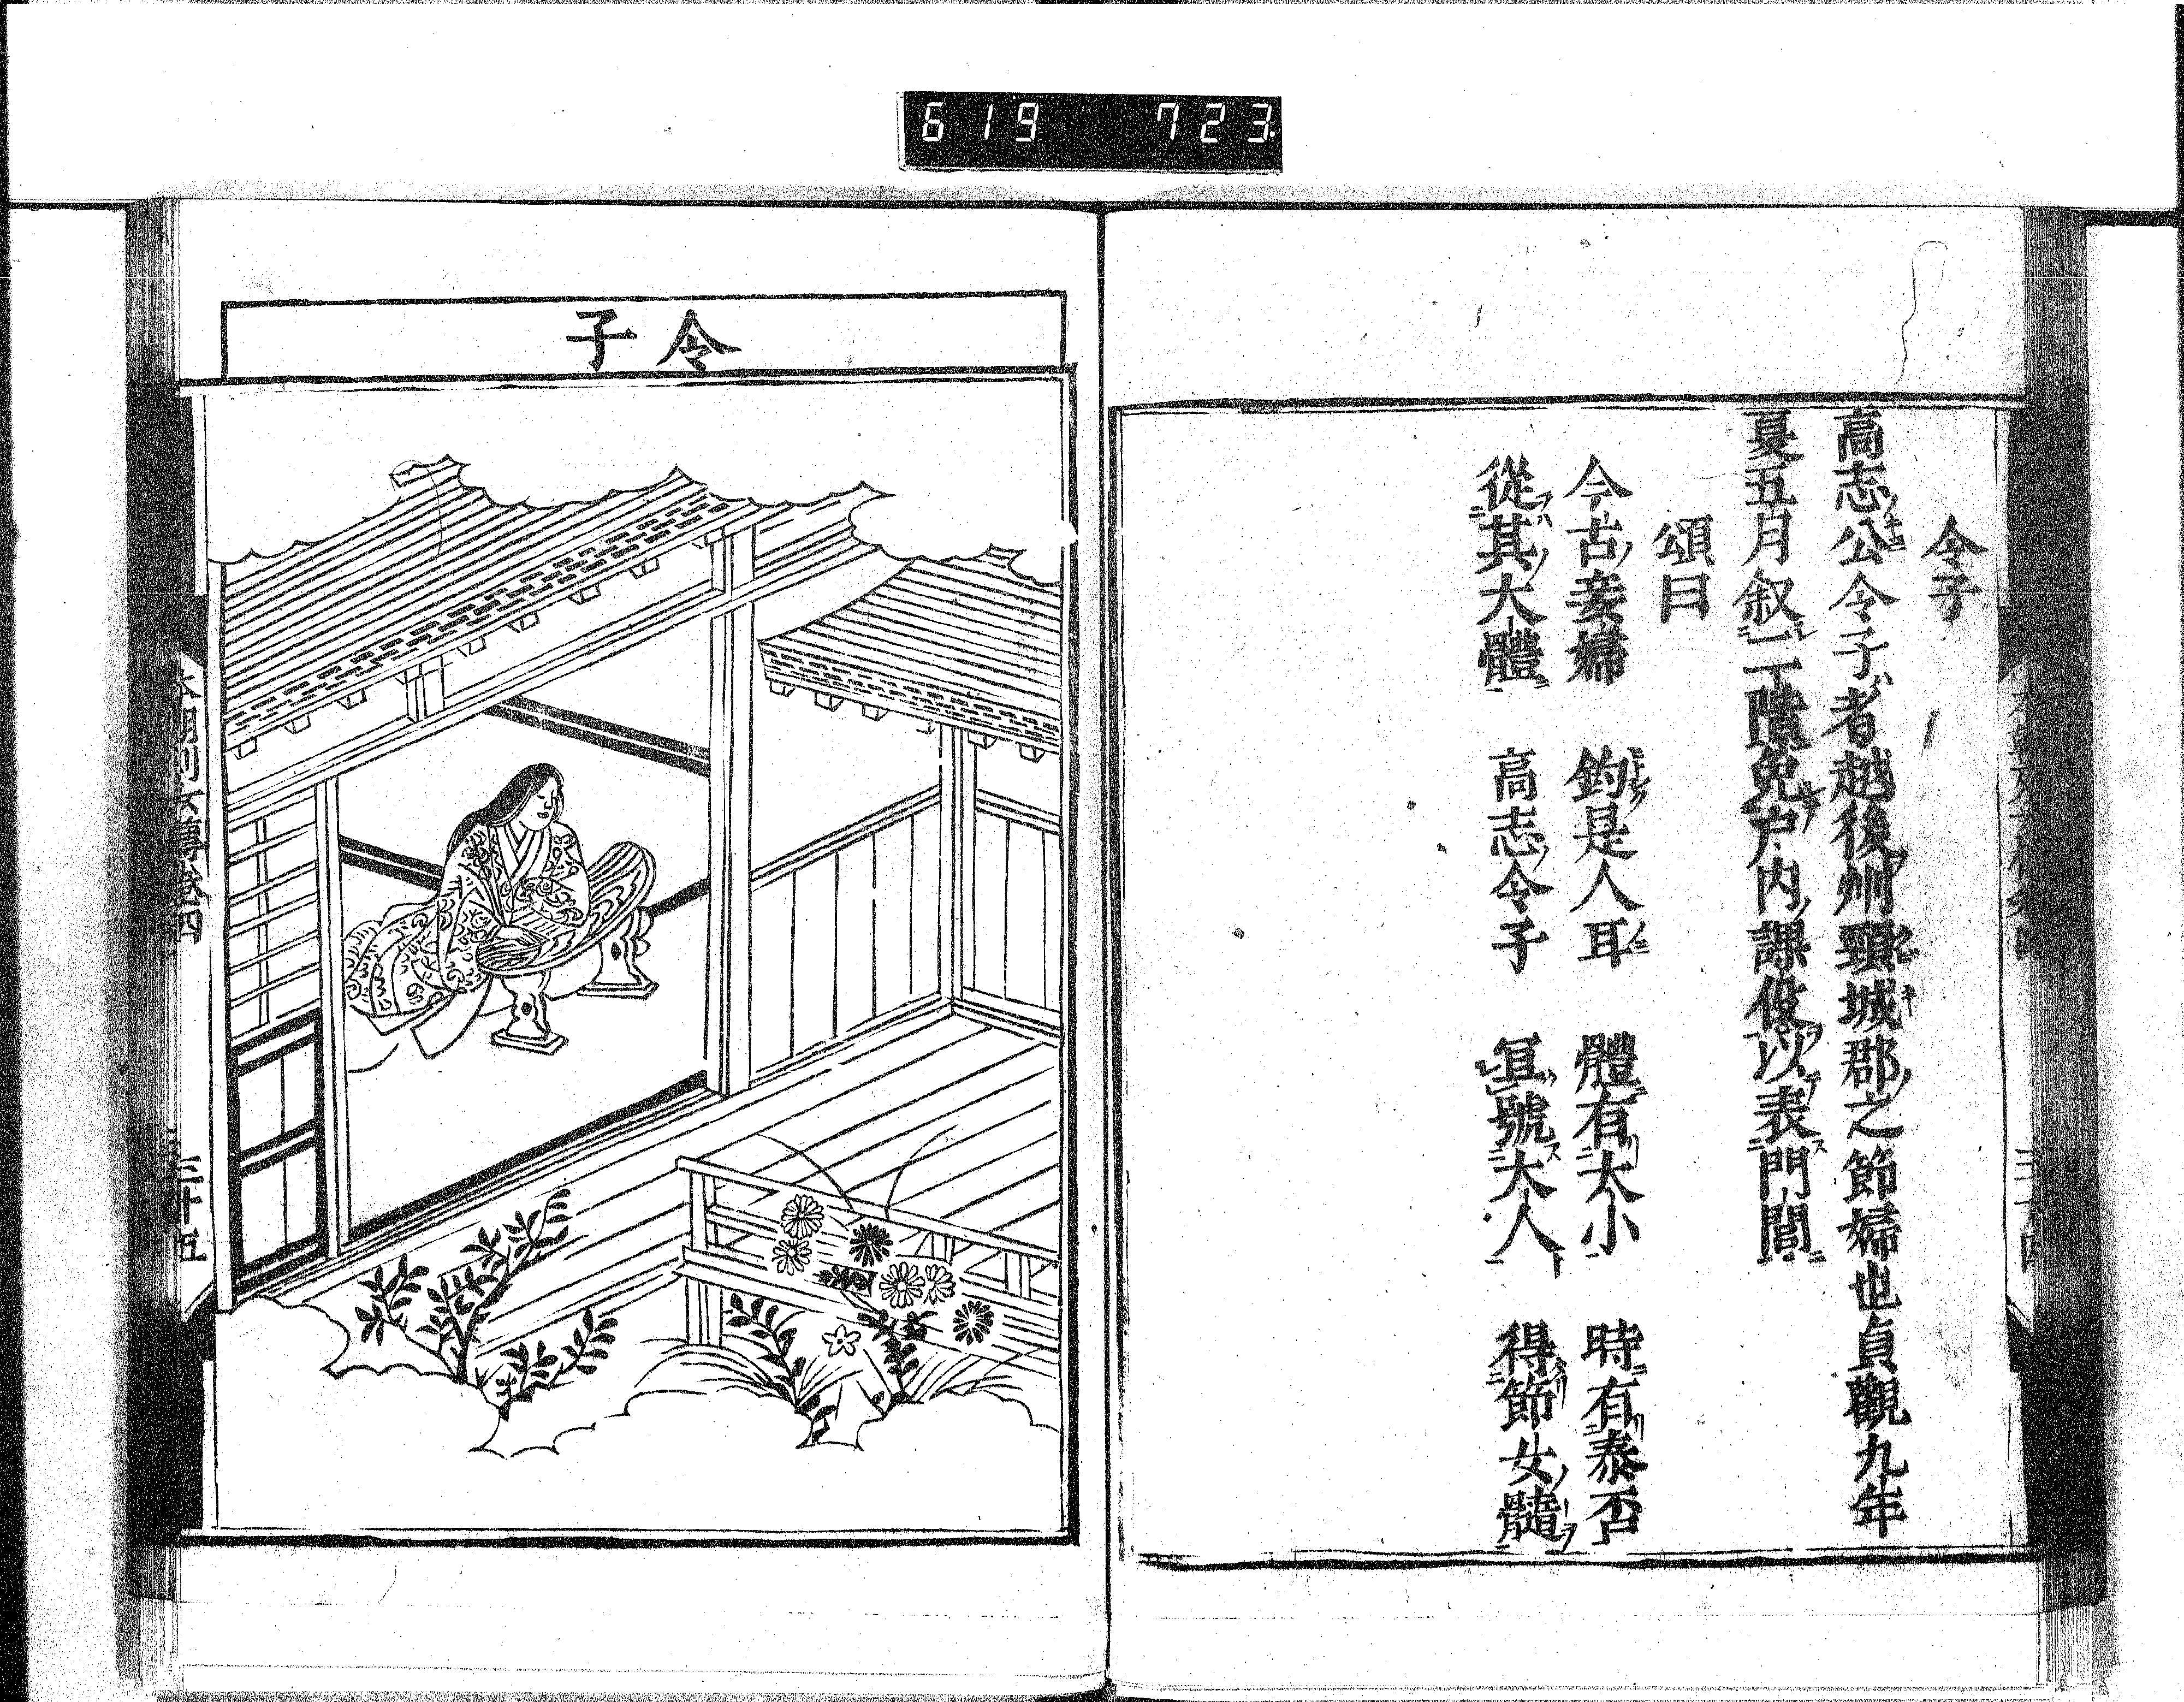 619 723
令子
高志公令子者越後州頸城郡之節婦也貞觀九年
夏五月叙二階免戸内課役以表門閭
頌曰
今古妾婦 鈞是人耳 體有大小 時有泰否
從其大體 高志令子 宜號大人 得節女髓
令子
本朝列女傳卷四
三十五